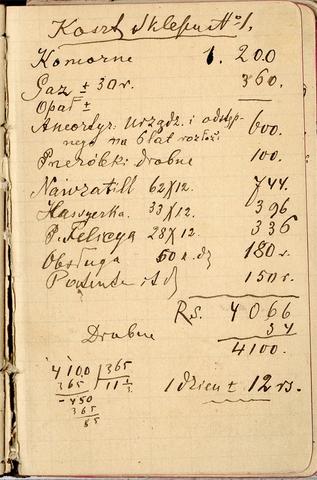 Koszt Sklepu No 1.
Komorne 1.200
Gaz ± 30 r. 360.
Opał ±
Amortyz: Urządz. i odstęp-
nego na 6 lat rozłoż 600.
Przeróbki drobne 100.
Nawratill 62 X 12. 744.
Kassyerka. 33 X 12. 396
P. Felicya 28 X 12. 336
Obsługa 50 k. dz 180 r.
Patenta itd 150 r.
Rs. 4066
Drobne 34
4100.
4100 | 365
365 11 1/3
-450
365
85
1 dzień ± 12 rs.